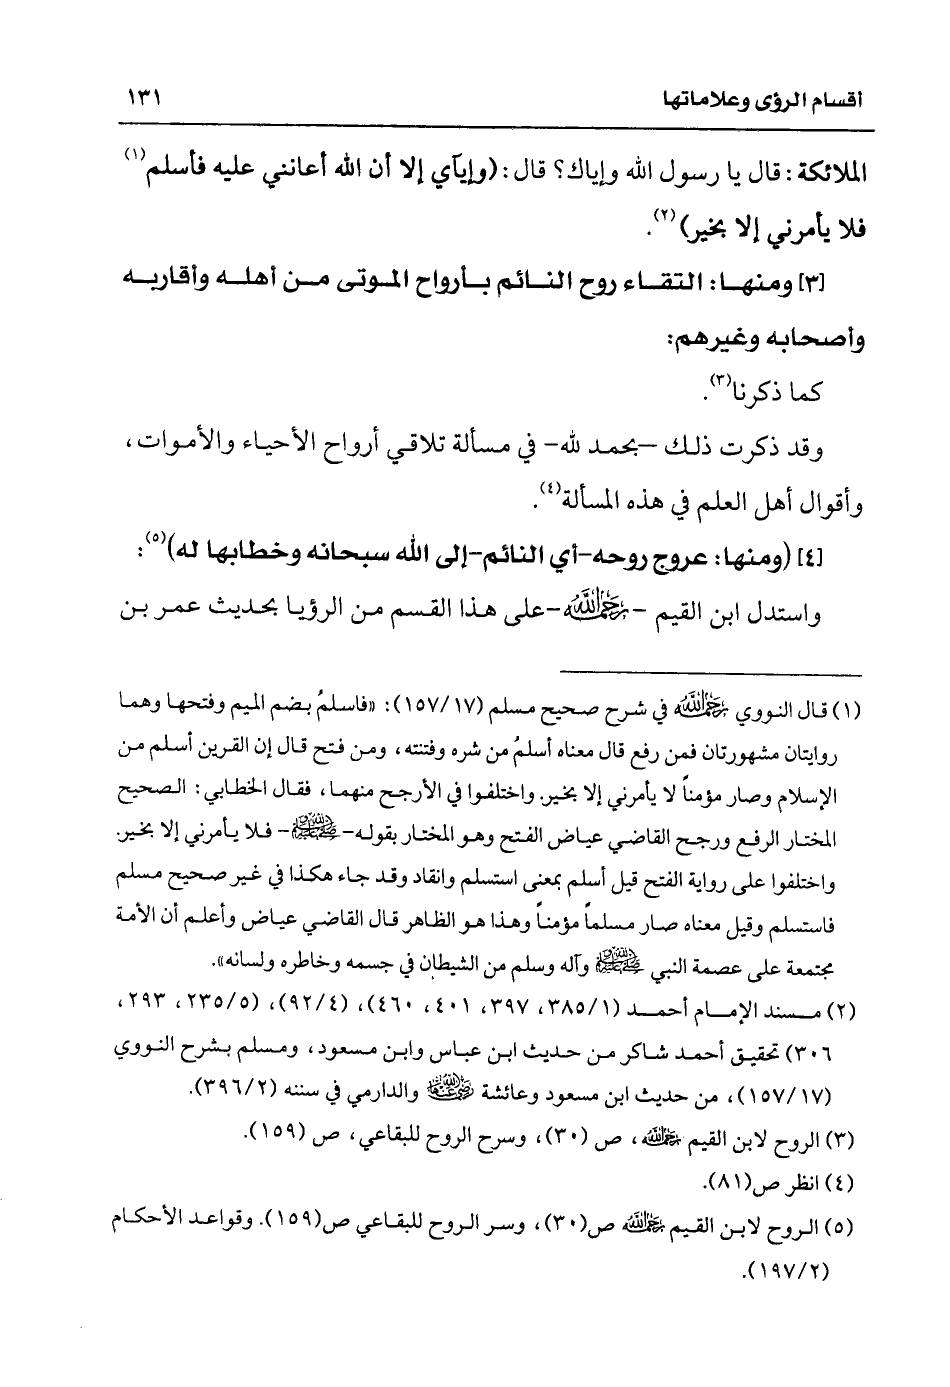 أقسام الرؤى وعلاماتها ١٣١
الملائكة: قال يا رسول الله وإياك؟ قال: (وإيآي إلا أن الله أعانني عليه فأسلم(١)
فلا يأمرني إلا بخير)(٢).
[٣] ومنها: التقاء روح النائم بأرواح الموتى من أهله وأقاربه
وأصحابه وغيرهم:
كما ذكرنا(٣).
وقد ذكرت ذلك –بحمد لله– في مسألة تلاقي أرواح الأحياء والأموات،
وأقوال أهل العلم في هذه المسألة(٤).
[٤] (ومنها: عروج روحه–أي النائم–إلى الله سبحانه وخطابها له)(٥):
واستدل ابن القيم –رحمه الله–على هذا القسم من الرؤيا بحديث عمر بن
(١) قال النووي رحمه الله في شرح صحيح مسلم (١٥٧/١٧): «فاسلمُ بضم الميم وفتحها وهما
روايتان مشهورتان فمن رفع قال معناه أسلمُ من شره وفتنته، ومن فتح قال إن القرين أسلم من
الإسلام وصار مؤمناً لا يأمرني إلا بخير. واختلفوا في الأرجح منهما، فقال الخطابي: الصحيح
المختار الرفع ورجح القاضي عياض الفتح وهو المختار بقوله– ﷺ – فلا يأمرني إلا بخير.
واختلفوا على رواية الفتح قيل أسلم بمعنى استسلم وانقاد وقد جاء هكذا في غير صحيح مسلم
فاستسلم وقيل معناه صار مسلماً مؤمناً وهذا هو الظاهر قال القاضي عياض وأعلم أن الأمة
مجتمعة على عصمة النبي ﷺ وآله وسلم من الشيطان في جسمه وخاطره ولسانه».
(٢) مسند الإمام أحمد (٣٨٥/١، ٣٩٧، ٤٠١، ٤٦٠)، (٩٢/٤)، (٢٣٥/٥، ٢٩٣،
٣٠٦) تحقيق أحمد شاكر من حديث ابن عباس وابن مسعود، ومسلم بشرح النووي
(١٥٧/١٧)، من حديث ابن مسعود وعائشة رضي الله عنها والدارمي في سننه (٣٩٦/٢).
(٣) الروح لابن القيم رحمه الله، ص (٣٠)، وسرح الروح للبقاعي، ص (١٥٩).
(٤) انظر ص(٨١).
(٥) الروح لابن القيم رحمه الله ص(٣٠)، وسر الروح للبقاعي ص(١٥٩). وقواعد الأحكام
(١٩٧/٢).